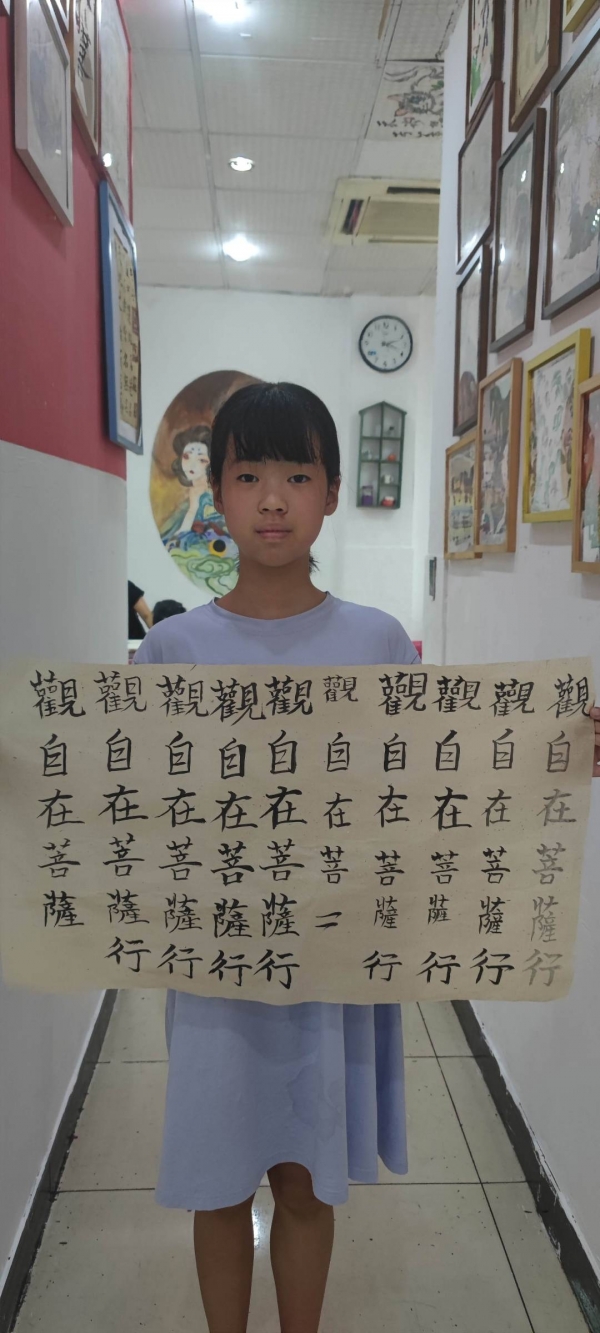 觀自在菩薩行
觀自在菩薩行
觀自在菩薩行
觀自在菩薩行
觀自在菩二
觀自在菩薩行
觀自在菩薩行
觀自在菩薩行
觀自在菩薩行
觀自在菩薩